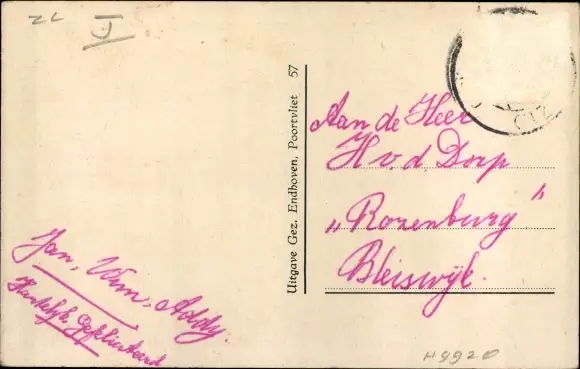 ZL
Jan, Wim, Addy.
Hartelijk Gefeliciteerd
Uitgave Gez. Endhoven, Poortvliet 57
Aan de Heer
H v. d. Dorp
„Rozenburg"
Bleiswijk.
H9920